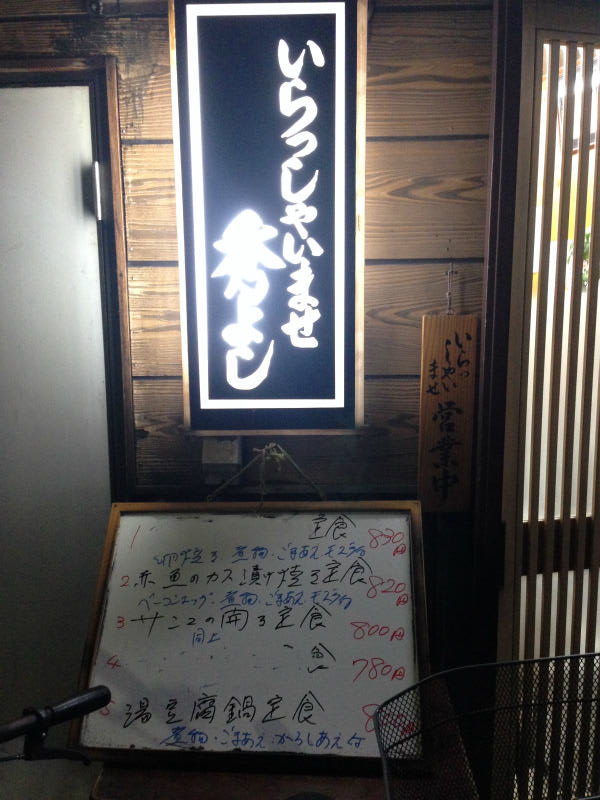 いらっしゃいませ
秀よし
いらっ
しゃい
ませ
営業中
1 定食 830円
卵焼き・煮物・ごまあえ
2. 赤魚のカス漬け焼き定食 820円
ベーコンエッグ・煮物・ごまあえ
3 サンマの開き定食 800円
同上
4 食 780円
5 湯豆腐鍋定食
煮物・ごまあえ・からしあえ